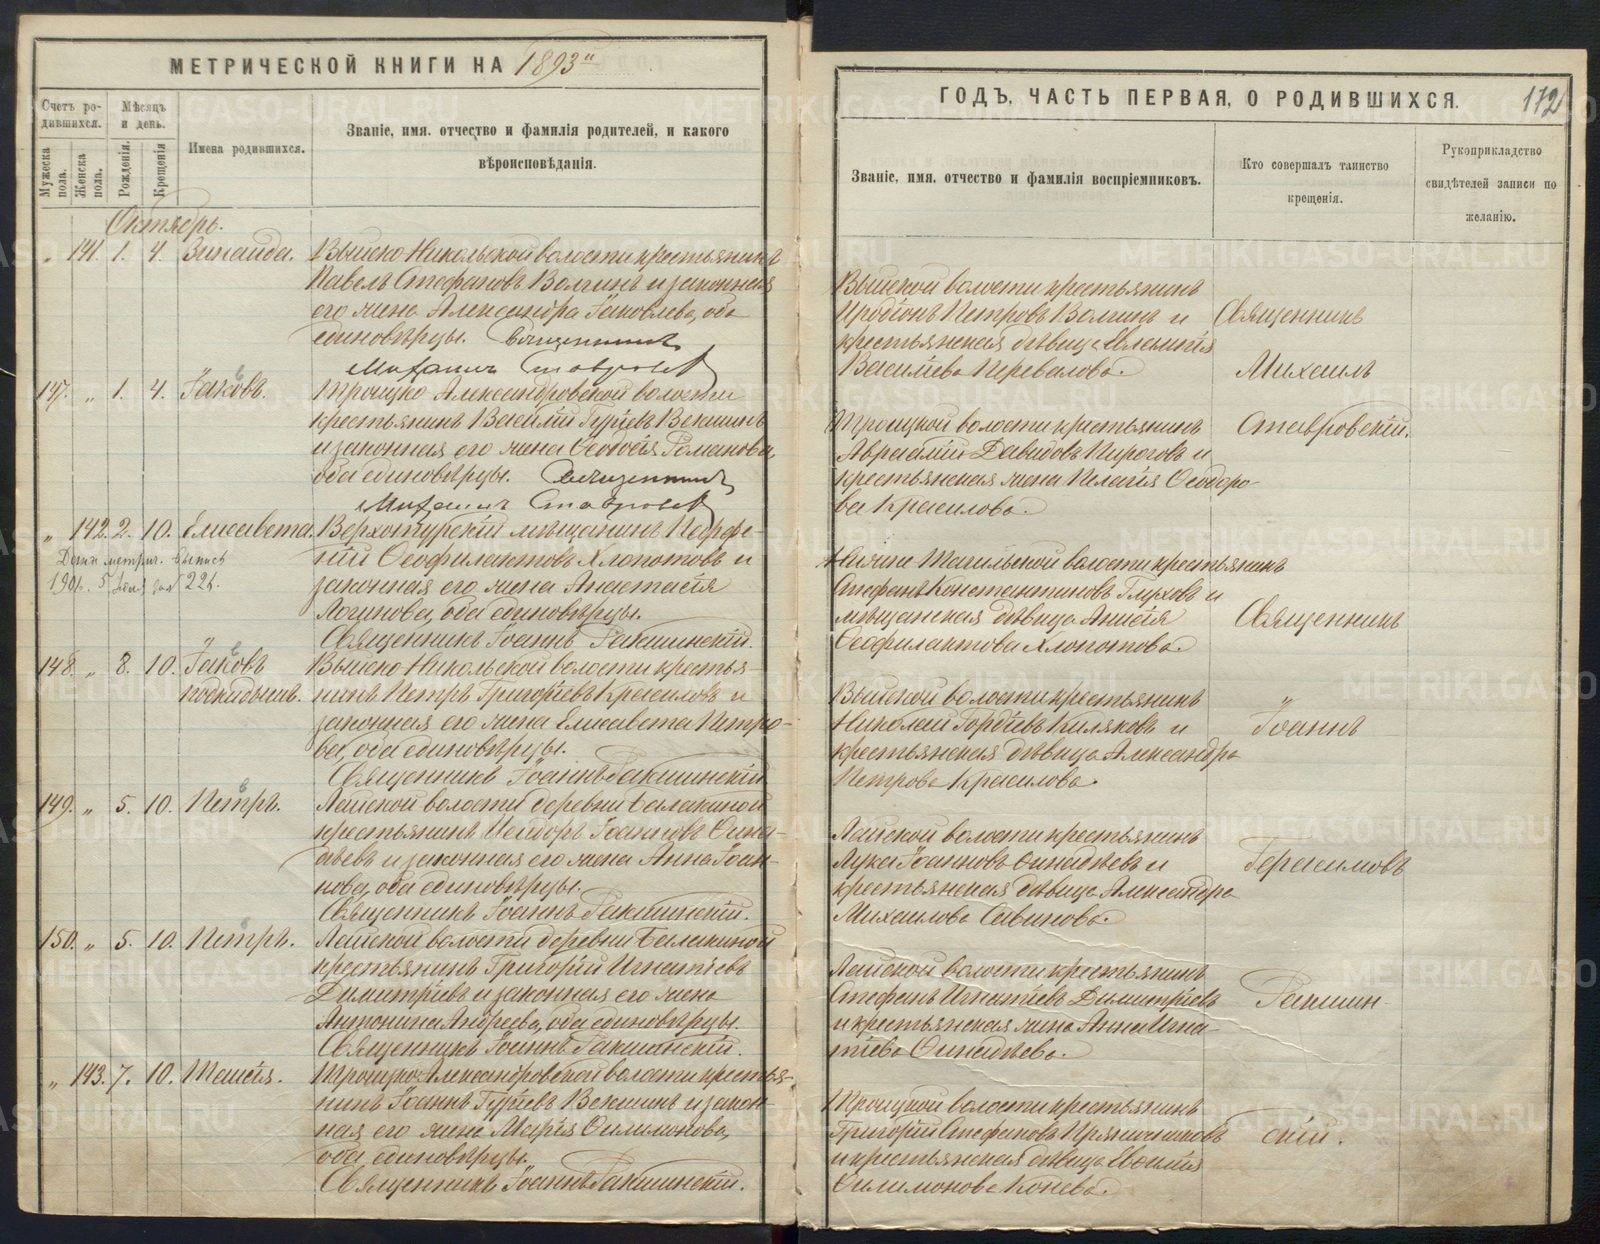 МЕТРИЧЕСКОЙ КНИГИ НА 1893й
Счетъ родившихся.
Мѣсяцъ и день.
Мужеска пола.
Женска пола.
Рожденія.
Крещенія
Имена родившихся.
Званіе, имя, отчество и фамилія родителей, и какого
вѣроисповѣданія.
Октябрь.
„ 141. 1. 4. Зинаида. Выйско-Никольской волости крестьянинъ
Павелъ Стефановъ Волгинъ и законная
его жена Александра Іаковлева, оба
единовѣрцы. Священникъ
Михаилъ Ставровскій
147. „ 1. 4. Іаковъ. Троицко-Александровской волости
крестьянинъ Василій Гуріевъ Векшинъ
и законная его жена Ѳеодосія Романова,
оба единовѣрцы. Священникъ
Михаилъ Ставровскій
„ 142. 2. 10. Елисавета. Верхотурскій мѣщанинъ Порфи-
рій Ѳеофилактовъ Хлопотовъ и
законная его жена Анастасія
Логинова, оба единовѣрцы.
Священникъ Іоаннъ Ракшинскій.
метрич. выпись
148. „ 8. 10. Іаковъ подкидышъ. Выйско-Никольской волости крестья-
нинъ Петръ Григоріевъ Красиловъ и
законная его жена Елисавета Петро-
ва, оба единовѣрцы.
Священникъ Іоаннъ Ракшинскій
149. „ 5. 10. Петръ. Лайской волости деревни Балакиной
крестьянинъ Исидоръ Іоанновъ
и законная его жена Анна Іоан-
нова, оба единовѣрцы.
Священникъ Іоаннъ Ракшинскій.
150. „ 5. 10. Петръ. Лайской волости деревни Балакиной
крестьянинъ Григорій Игнатіевъ
Димитріевъ и законная его жена
Антонина Андреева, оба единовѣрцы.
Священникъ Іоаннъ Ракшинскій.
„ 143. 7. 10. Таисія. Троицко-Александровской волости крестья-
нинъ Іоаннъ Гуріевъ Векшинъ и закон-
ная его жена Марія Филимонова,
оба единовѣрцы.
Священникъ Іоаннъ Ракшинскій.
ГОДЪ, ЧАСТЬ ПЕРВАЯ, О РОДИВШИХСЯ.
172
Званіе, имя, отчество и фамилія воспріемниковъ.
Кто совершалъ таинство
крещенія.
Рукоприкладство
свидѣтелей записи по
желанію.
Выйской волости крестьянинъ
Иродіонъ Петровъ Волгинъ и
крестьянская дѣвица
Василіева Перевалова.
Священникъ
Михаилъ
Ставровскій.
Троицкой волости крестьянинъ
Авраамій Давидовъ Пироговъ и
крестьянская жена Пелагія Ѳеодоро-
ва Красилова.
Нижне-Тагильской волости крестьянинъ
Стефанъ Константиновъ Глуховъ и
мѣщанская дѣвица Анисія
Ѳеофилактова Хлопотова.
Священникъ
Іоаннъ
Герасимовъ
Ракшин-
скій.
Выйской волости крестьянинъ
Николай Гордѣевъ Киляковъ и
крестьянская дѣвица Александра
Петрова Красилова.
Лайской волости крестьянинъ
Лука Іоанновъ и
крестьянская дѣвица Александра
Михаилова Савинова.
Лайской волости крестьянинъ
Стефанъ Игнатіевъ Димитріевъ
и крестьянская жена Анна Игна-
тіева
Троицкой волости крестьянинъ
Григорій Стефановъ Пряничниковъ
и крестьянская дѣвица
Филимонова Конева.
METRIKI.GASO-URAL.RU